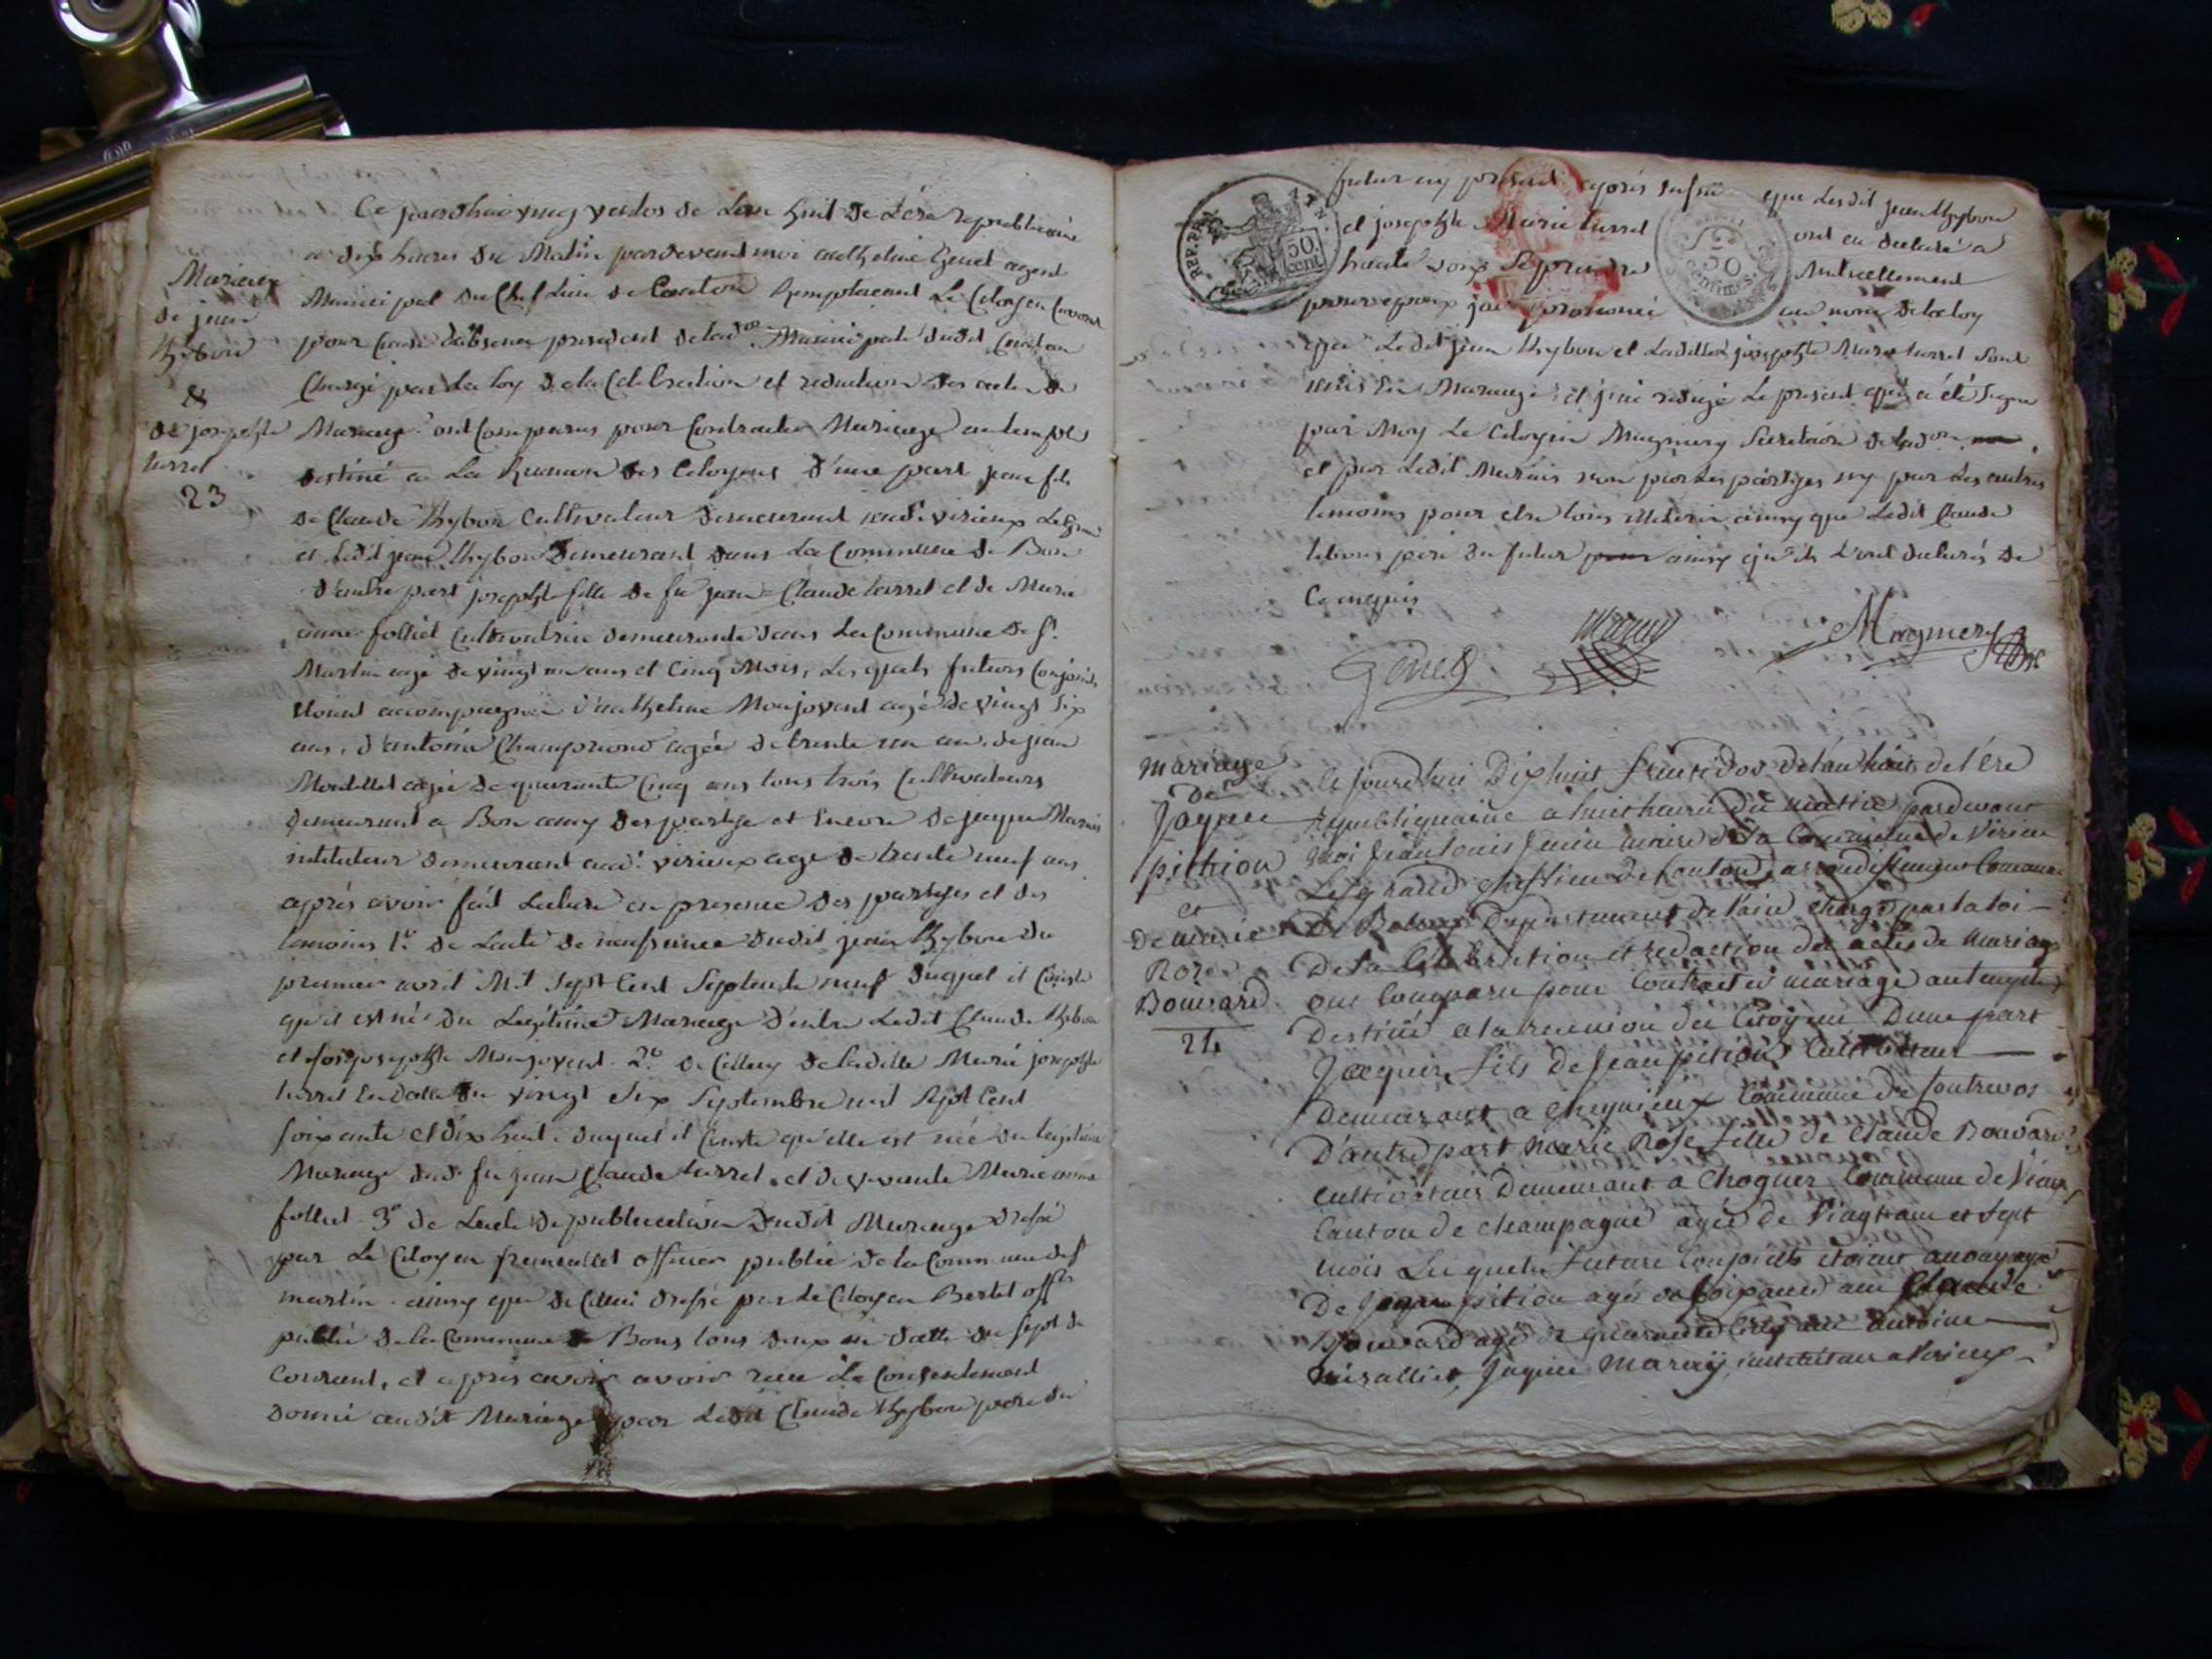 Mariage
de jean
Thybon
&
de josephte
turrel
23
Ce jourdhui vingt ventos de L'an huit de L'ére republicaine
a dix heures du Matin pardevant moi anthelme Genet agent
Municipal du Chef Lieu de Canton Remplacent Le Citoyen
pour Cause d'absence president de lad.on Municipale dudit Canton
Chargé par La Loy de la Celebration et redaction des actes de
Mariage ont Comparus pour Contracter Mariage au temple
destiné a La Reunion des Citoyens d'une part jean fils
de Claude Thybon Cultivateur demeurant aud. virieux Le grand
et Ledit jean Thybon demeurant dans La Commune de Bon
d'autre part josephte fille de fu jean Claude turrel et de Marie
anne folliet Cultivatrice demeurante dans La Commune de St.
Martin agé de vingt un ans et Cinq Mois, Les quels futurs Conjoints
etoient accompagnés d'anthelme Monjovent agé de vingt Six
ans, d'antoine Championd agée de trente un an, de jean
Montillet agée de quarante Cinq ans tous trois Cultivateurs
demeurant a Bon amy des partyes et Encore de jaque Marais
instituteur demeurant aud. virieux age de trente neuf ans
aprés avoir fait Lecture en presence des partyes et des
temoins 1.o de L'acte de naissance dudit jean Thybon du
premier avril Mil Sept Cent Septante neuf duquel il Conste
qu'il est né du Legitime Mariage d'entre Ledit Claude Thibon
et josephte Monjovent. 2.o de Celluy de laditte Marie josephte
turrel En datte du vingt Six Septembre mil Sept Cent
soixante et dix huit, duquel il Conste qu'elle est née du legitime
Mariage dud. fu jean Claude turrel et de vivante Marie anne
folliet 3.o de L'acte de publication dudit Mariage dressé
par Le Citoyen officier public de la Commune de St
martin ainsy que de Cellui dressé par Le Citoyen Bertet off.er
public de la Commune de Bons tous deux en datte du sept du
Courant, et aprés avoir avoir reçu Le Consentement
donné audit Mariage par Ledit Claude Thybon pere du
REP. FRA.
50.
cent.
50
centimes
futur cy present aprés aussi que Lesdit jean Thybon
et josephte Marie turrel ont eu declaré a
haute voix Se prendre Mutuellement
pour epoux jai prononcé au nom de la loy
que Ledit jean Thybon et Laditte josephte Marie turrel sont
unis En Mariage, et j'ai redigé Le present qui a été Signé
par Moy Le Citoyen Magniery Secretaire de lad.on
et par Ledit Marais non par Les partyes ny par Les autres
temoins pour etre tous illiterés ainsy que Ledit Claude
tibons pere du futur ainsy qu'ils L'ont declarés de
Ce enquis
Genet Maray Magniery
mariage
de
Jaques
pithion
et
De marie
Roze
Bouvard
24
Ce jourdhui Dixhuit fructidor de l'an huit de l'ère
republiquaine a huit heure du matin pardevant
moi Jean Louis maire de la Commune de Virieu
Legrand chef lieu de Canton, arrondissement Communal
De Belley Département de l'ain chargé par la loi
De la Célébration et redaction des actes de mariage
ont Comparu pour Contracter mariage au temple
Destiné a la reunion des Citoyens D'une part
Jaques fils De Jean pition Cultivateur
Demeurant a Commune de
D'autre part Marie Rose fille de Claude Bouvard
cultivateur Demeurant a Commune de Vieux
Canton de champagne agée de Vingt un et sept
mois Lesquels futurs Conjoints étoient
De Jaques pition agé de soixante ans Claude
Bouvard agé de quarante Cinq ans Antoine
Jaques Maray instituteur a Virieux